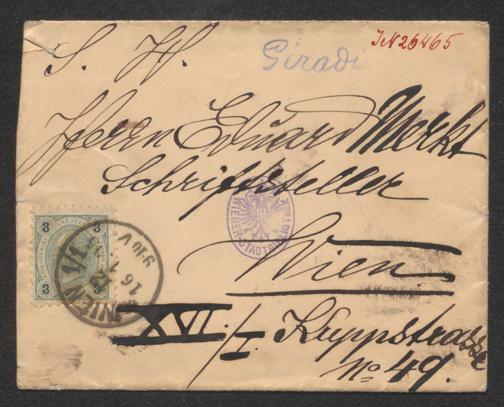 S. W.
Giradi
IN 26465
Herrn Eduard Merkt
Schriftsteller
Wien
XVI./I. Kuppstrasse
No 49.
3 3
3 3
WIEN 1/1
16